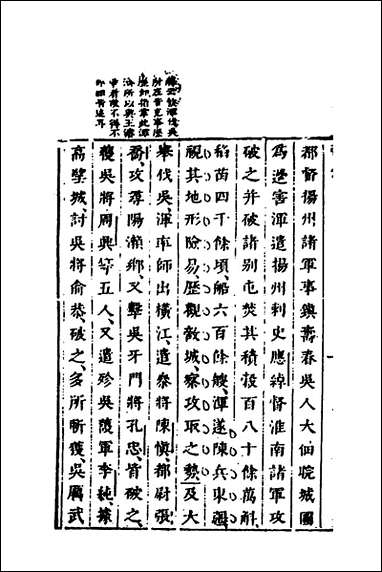 伐吳
所在皆克事歷
歷如指掌此渾
所以與王濬
不得不
都督揚州諸軍事鎮壽春吳人大佃皖城圖
為邊害渾遣揚州刺史應綽督淮南諸軍攻
破之并破諸别屯焚其積穀百八十餘萬斛
稻苗四千餘頃船六百餘艘渾遂陳兵東疆
視其地形險易歷觀敵城察攻取之勢及大
舉伐吳渾率師出橫江遣參將陳慎都尉張
喬攻尋陽瀨鄉又擊吳牙門將孔忠皆破之
獲吳將周興等五人又遣殄吳護軍李純據
高望城討吳將俞恭破之多所斬獲吳厲武